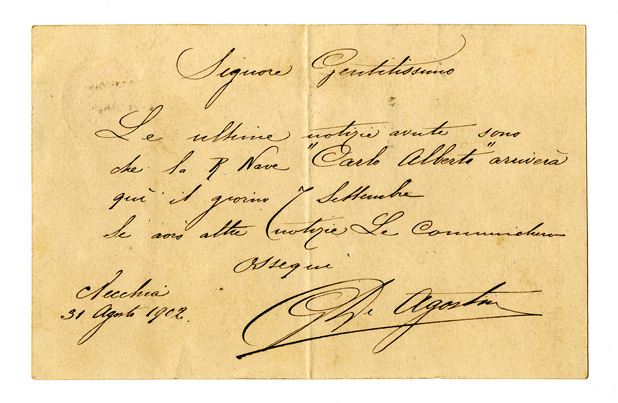 Signore Gentilissimo
Le ultime notizie avute sono
che la R. Nave "Carlo Alberto" arriverà
quì il giorno 7 Settembre
Se avrò altre notizie Le comunicherò
Ossequi
31 Agosto 1902.
De Agostini